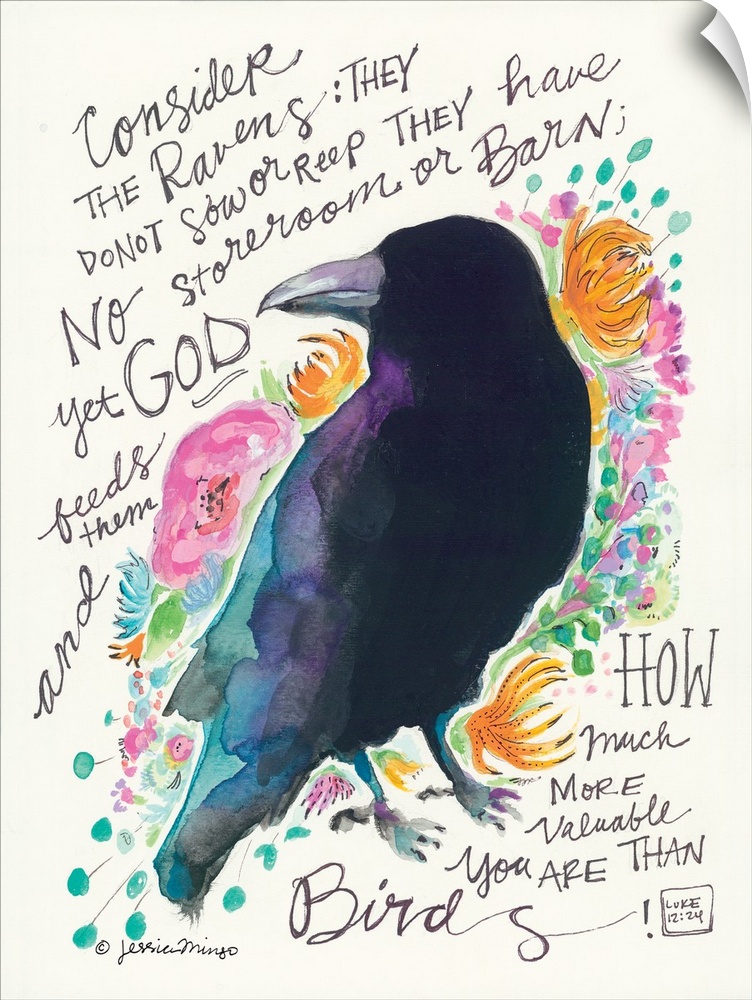 Consider
THE Ravens: THEY
DO NOT SOW OR REEP THEY have
NO storeroom or BARN;
yet GOD
feeds
them
and
HOW
much
MORE
Valuable
you ARE THAN
Birds!
LUKE
12:24
© Jessica Mingo